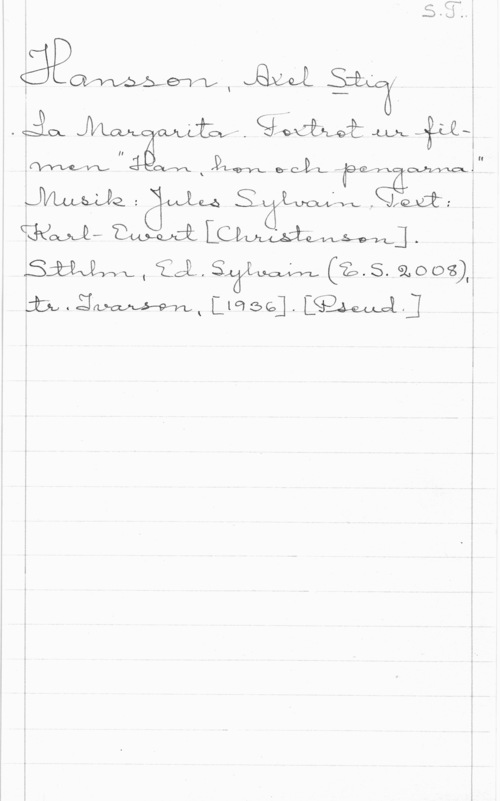 S.T.
Hansson, Axel Stig
La Margarita. Foxtrot ur fil-
men "Han, hon och pengarna."
Musik: Jules Sylvain. Text:
Karl-Ewert [Christenson].
Sthlm, Ed. Sylvain (E.S. 2008),
tr. Ivarson, [1936]. [Pseud.]